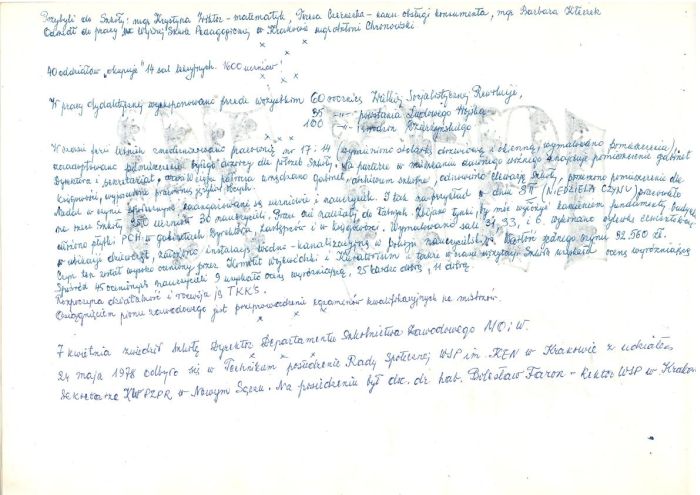 Przybyli do Szkoły: mgr Krystyna Wiktor - matematyk, Teresa - kier. obsługi konsumenta, mgr Barbara
Odszedł do pracy w Wyższej Szkole Pedagogicznej w Krakowie mgr Antoni Chronowski
40 oddziałów "okupuje" 14 sal lekcyjnych. 1600 uczniów!
W pracy dydaktycznej wyeksponowano przede wszystkim 60 rocznicę Wielkiej Socjalistycznej Rewolucji,
35 -"- powstania Ludowego Wojska
100 -"- urodzin Dzierżyńskiego
W okresie ferii letnich zmodernizowano pracownię nr 17 i 14 /wymieniono stolarkę drzwiową i okienną, wymalowano pomieszczenia/,
zaadaptowano pomieszczenia byłego dla potrzeb Szkoły. Na parterze w mieszkaniu dawnego woźnego znajduje pomieszczenie gabinet
Dyrektora i sekretariat, oraz urządzono gabinet, archiwum szkolne, odnowiono elewację Szkoły, przeniesiono pomieszczenie dla
księgowości, wyposażono pracownię języków obcych.
Nadal w czynie społecznym zaangażowani są uczniowie i nauczyciele. I tak na przykład w dniu 8 IV (NIEDZIELA CZYNU) pracowało
na rzecz Szkoły 950 uczniów i 36 nauczycieli. Prace ich należały do łatwych. Zbijano tynki, by móc wyłożyć kamieniem fundamenty budynku,
ułożono płytki PCV w gabinetach Dyrektora, zastępców i w księgowości. Wymalowano sale 31, 33, i 6, wykonano
w ubikacji dziewcząt, założono instalację wodno-kanalizacyjną w pokoju nauczycielskim. Wartość całego czynu 92.560 zł.
Czyn ten został wysoko oceniony przez Komitet Wojewódzki i Kuratorium i także w czasie wizytacji Szkoła uzyskała ocenę wyróżniającą.
Spośród 45 ocenionych nauczycieli 9 uzyskało ocenę wyróżniającą, 25 bardzo dobrą, 11 dobrą.
Rozpoczyna działalność i rozwija ją TKKŚ.
Osiągnięciem pionu zawodowego jest przeprowadzenie egzaminów kwalifikacyjnych na mistrzów.
7 kwietnia zwiedził szkołę Dyrektor Departamentu Szkolnictwa Zawodowego MOiW.
24 maja 1978 odbyło się w Technikum posiedzenie Rady Społecznej WSP im. KEN w Krakowie z udziałem
Sekretarza KW PZPR w Nowym Sączu. Na posiedzeniu był doc. dr hab. Bolesław Faron - Rektor WSP w Krakowie